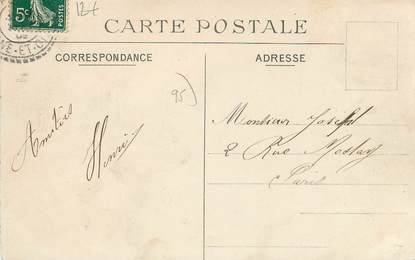 5c
POSTES
12+
CARTE POSTALE
CORRESPONDANCE
ADRESSE
95)
Amitiés
Henri
Monsieur Joseph
2 Rue Meslay
Paris